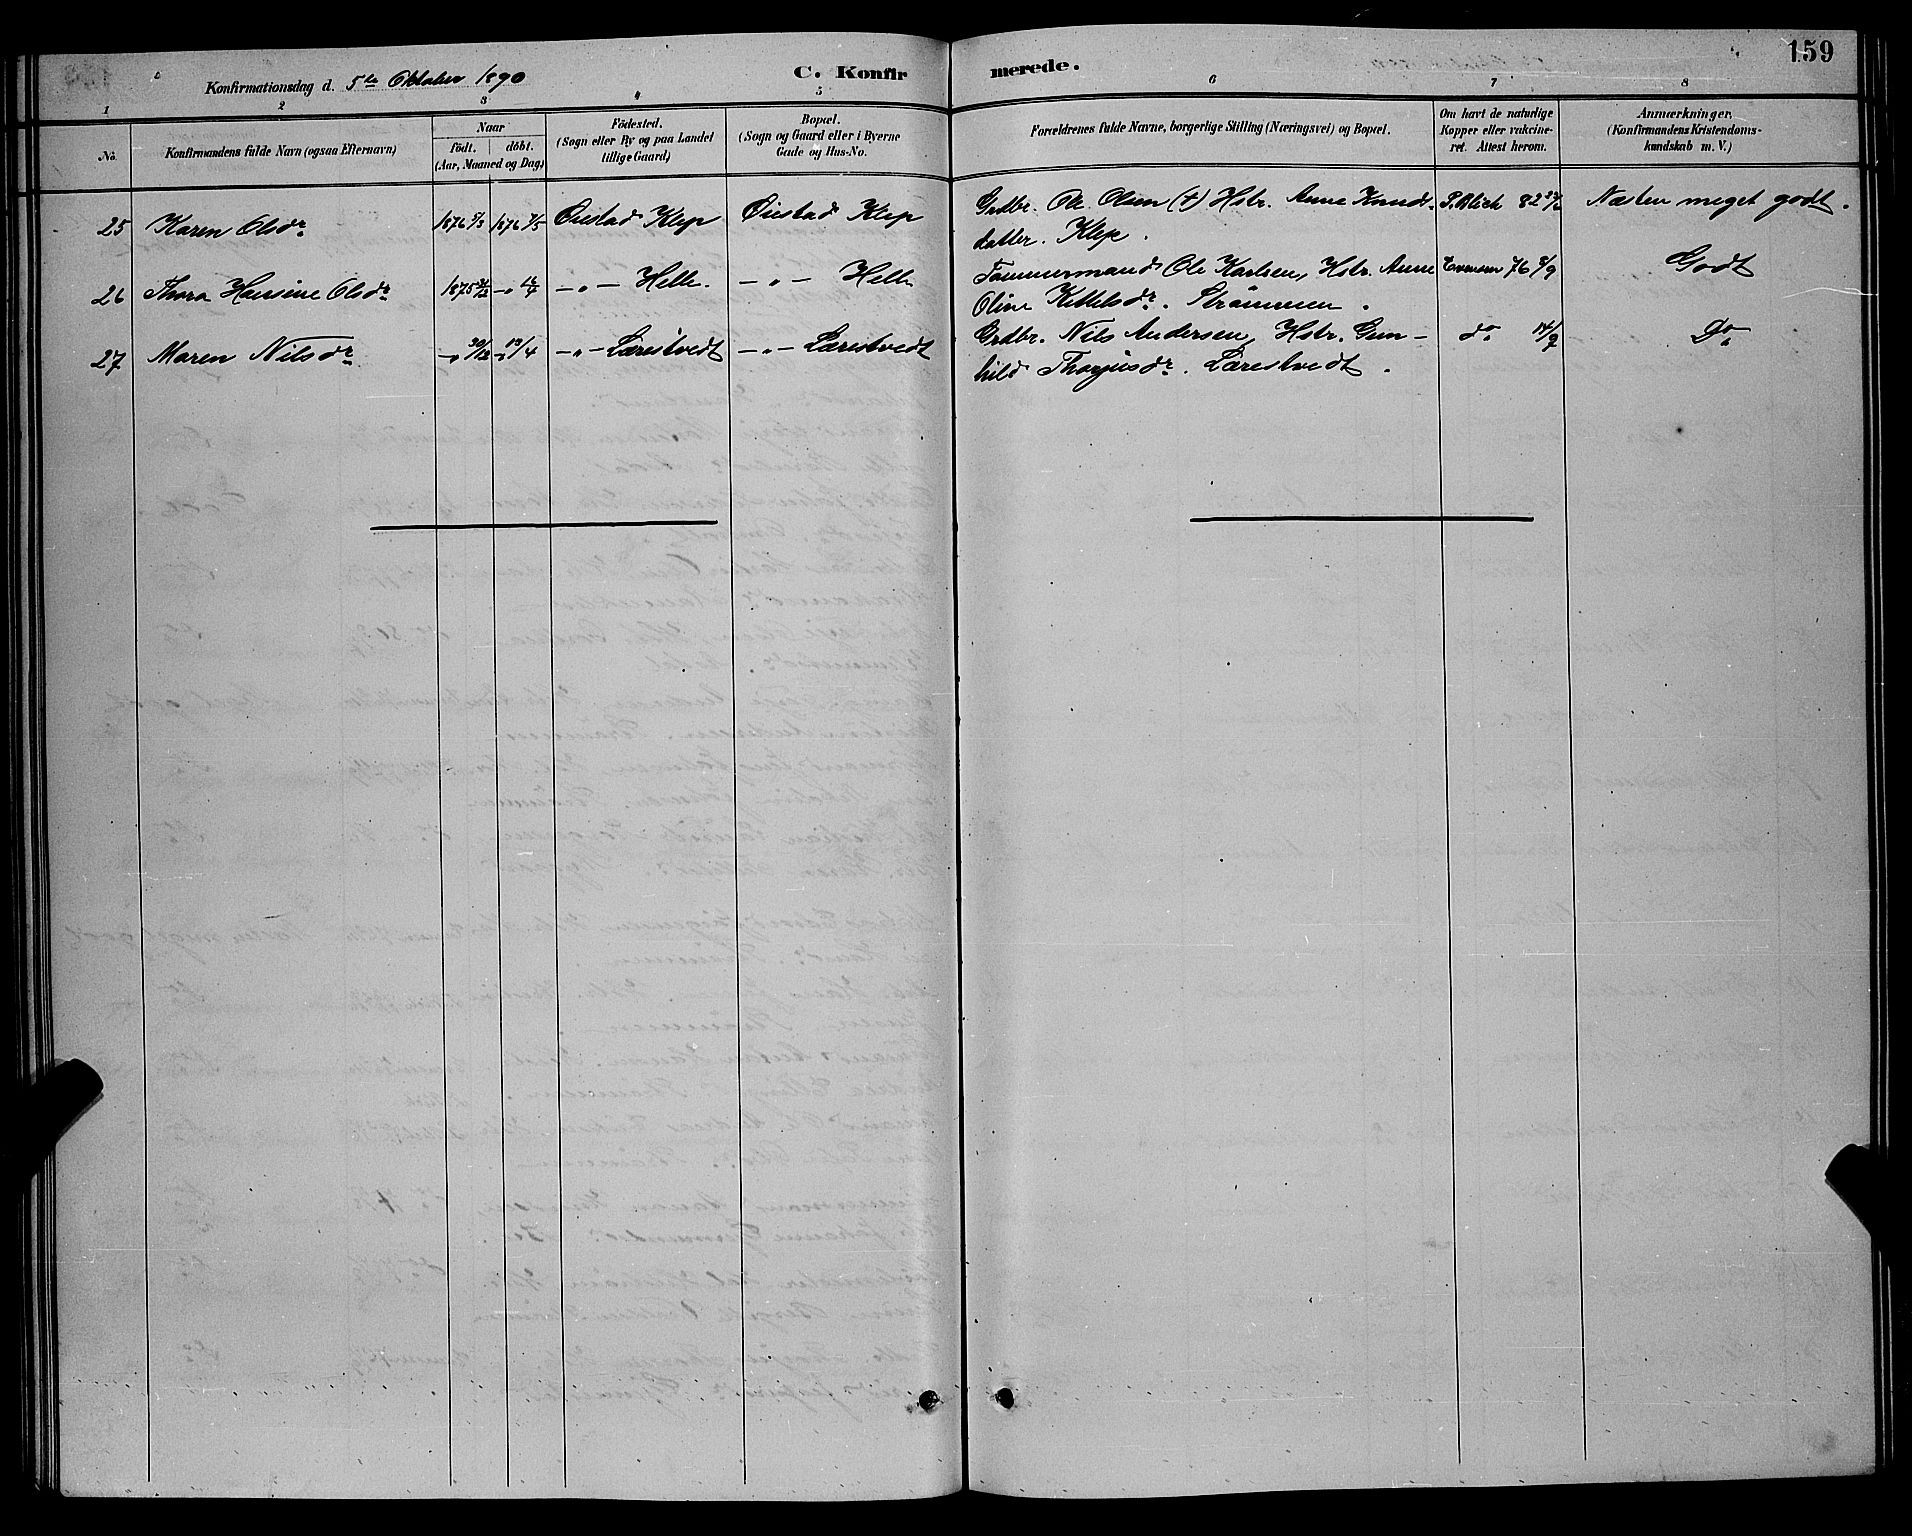 159
Konfirmationsdag d. 5te Oktober 1890
C. Konfirmerede.
1 2 3 4 5 6 7 8
No. Konfirmandens fulde Navn (ogsaa Efternavn)
Naar
födt. döbt.
(Aar, Maaned og Dag)
Födested.
(Sogn eller By og paa Landet
tillige Gaard)
Bopæl.
(Sogn og Gaard eller i Byerne
Gade og Hus-No.
Forældrenes fulde Navne, borgerlige Stilling (Næringsvei) og Bopæl.
Om havt de naturlige
Kopper eller vakcine-
ret. Attest herom.
Anmærkninger.
(Konfirmandens Kristendoms-
kundskab m. V.)
25 Karen Olsdr 1876 5/3 1876 7/5 Øiestad Klep Øiestad Klep Grdbr. Ole Olsen (†) Hstr. Anne Knuds-
datter. Klep. P. Blich 82 Næsten meget godt.
26 Thora Hansine Olsdr 1875 31/12 -„- -„- Helle. -„- Helle Tømmermand Ole Karlsen, Hstr. Anne
Oline Kettelsdr. Strømmen. Evensen 76 Godt
27 Maren Nilsdr -„- 30/12 -„- 17/4 -„- Lærestvedt -„- Lærestvedt Grdbr. Nils Andersen, Hstr. Gun-
hild Thorjusdr. Lærestvedt. do 14/9 Do